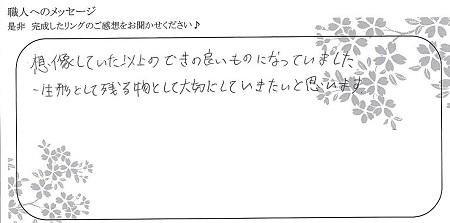 職人へのメッセージ
是非 完成したリングのご感想をお聞かせください♪
想像していた以上のできの良いものになっていました
一生形として残る物として大切にしていきたいと思います